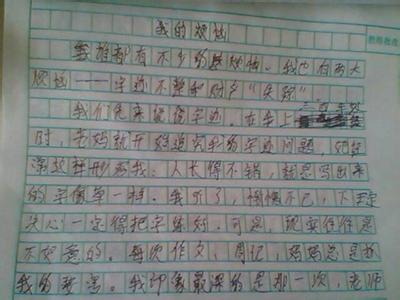 我的烦恼
谁都有不少的烦恼。我也有两大
烦恼——字迹不整和财字“失踪”
我们先来说说字迹。在早上
时，老妈就开始追究我的字迹问题，她
常这样形容我：人长得不错，就是写出来
的字像草一样。我听了，惭愧不已，下定
决心一定得把字练好。可是，现实往往是
不如意的。每次作文，周记，妈妈总是把
我的我印象最深的是那一次，老师